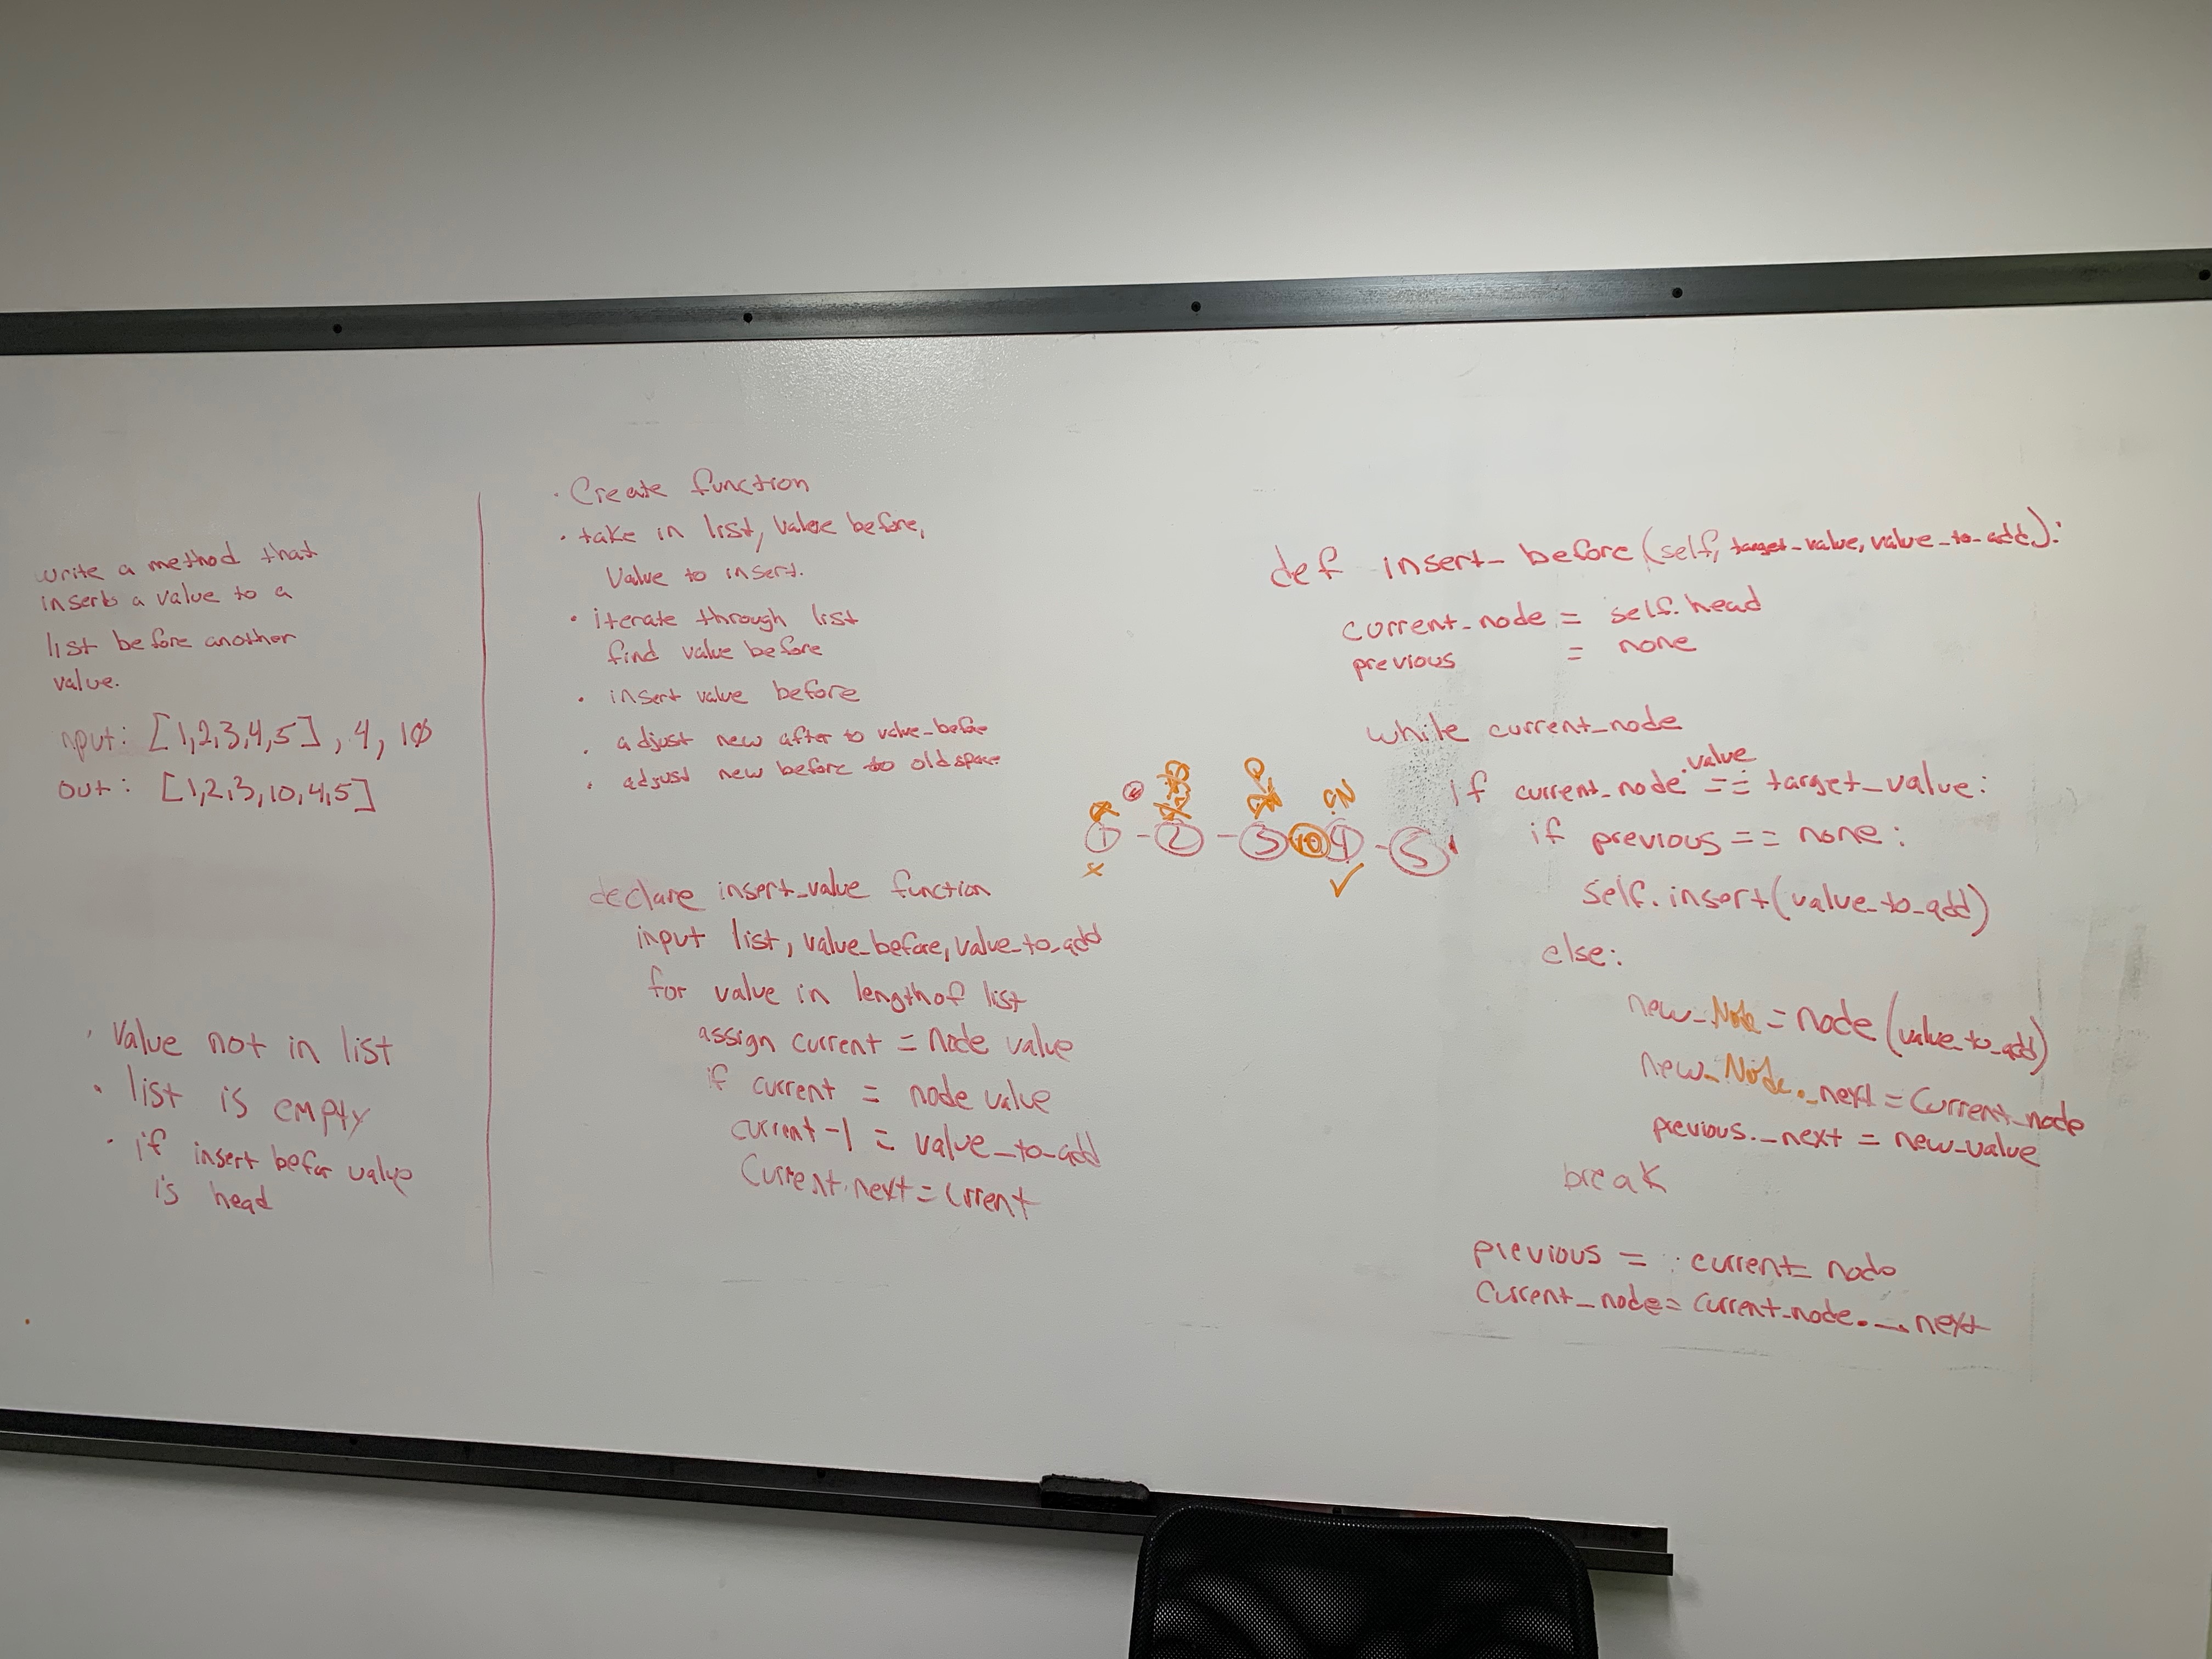 write a method that
inserts a value to a
list before another
value.
nput: [1,2,3,4,5], 4, 10
out: [1,2,3,10,4,5]
· Value not in list
· list is empty
· if insert befor value
is head
· Create function
· take in list, value before,
Value to insert.
· iterate through list
find value before
· insert value before
· adjust new after to value_before
· adjust new before to old space
declare insert_value function
input list, value_before, value_to_add
for value in length of list
assign current = node value
if current = node value
current-1 = value_to_add
Current.next = Crrent
1 - 2 - 3 10 4 - 5
def insert_before(self, target_value, value_to_add):
current_node = self.head
previous = none
while current_node
if current_node.value == target_value:
if previous == none:
self.insert(value_to_add)
else:
new_Node = node(value_to_add)
new_Node._next = Current_node
previous._next = new_value
break
previous = current_node
Current_node = current_node._next